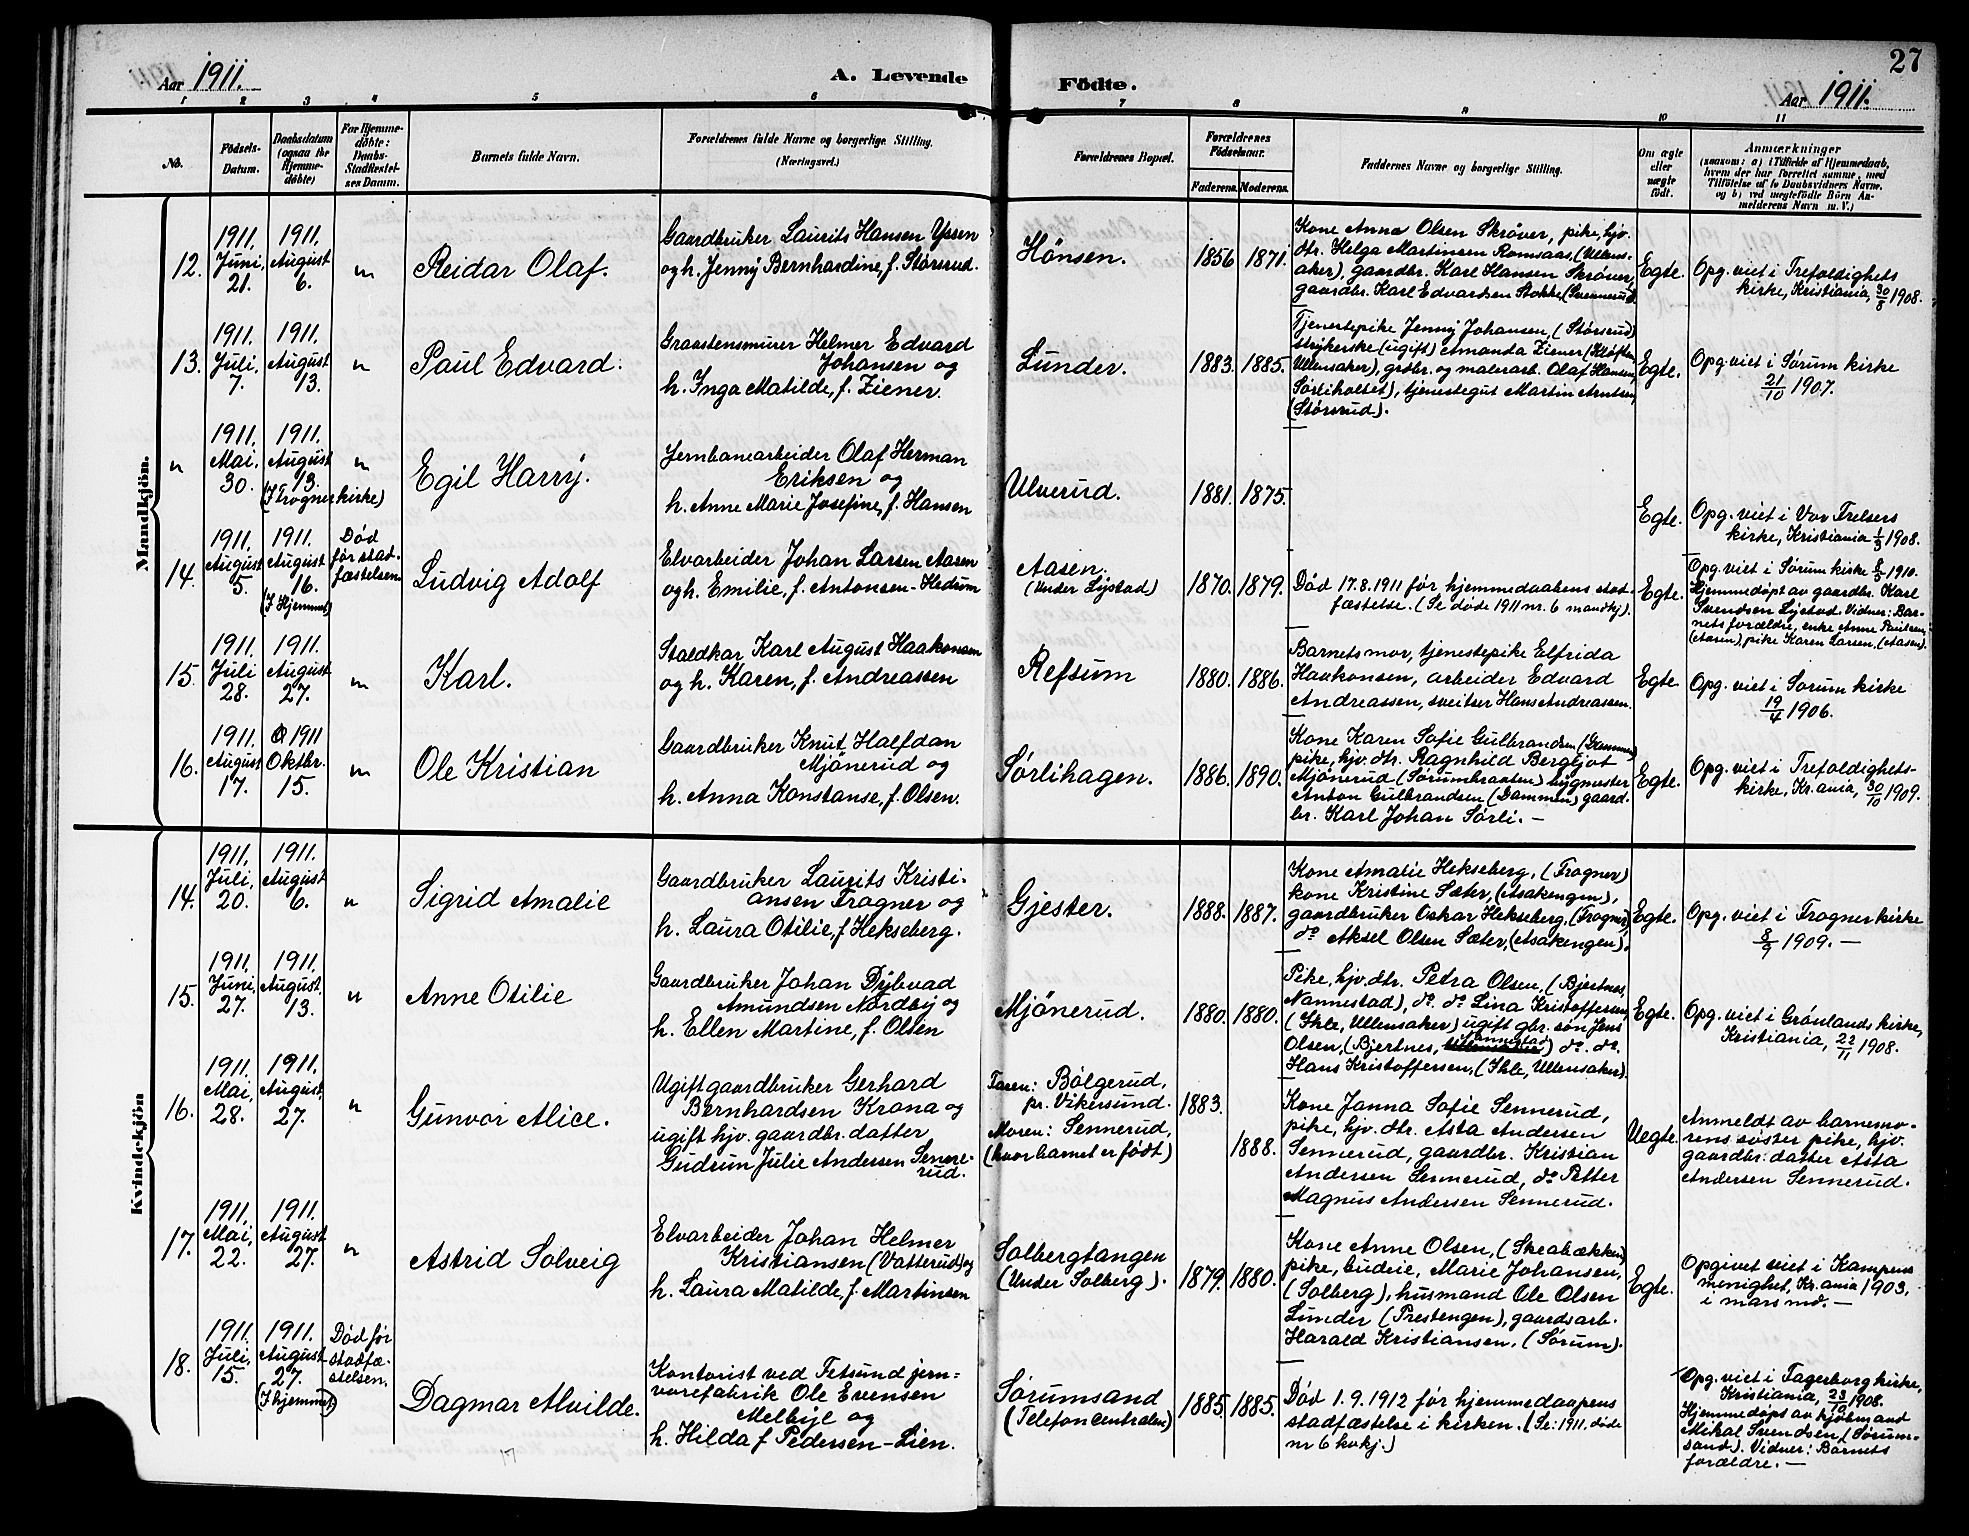 27
Aar 1911.
A. Levende
Födte.
Aar 1911.
1 2 3 4 5 6 7 8 9 10 11
No.
Födsels-
Datum.
Daabsdatum
(ogsaa for
Hjemme-
döbte)
For Hjemme-
döbte:
Daabs-
Stadfæstel-
ses Datum.
Barnets fulde Navn.
Forældrenes fulde Navne og borgerlige Stilling.
(Næringsvei.)
Forældrenes Bopæl.
Forældrenes
Födselsaar.
Faderens.
Moderens.
Faddernes Navne og borgerlige Stilling.
Om ægte
eller
uægte
födt.
Anmærkninger
(saasom: a) i Tilfælde af Hjemmedaab,
hvem der har forrettet samme, med
Tilföielse af to Daabsvidners Navne,
og b) ved uægtefödte Börn An-
melderens Navn m. V.)
Mandkjön.
12.
1911.
Juni,
21.
1911.
August
6.
"
Reidar Olaf.
Gaardbruker Laurits Hansen Yssen
og h. Jenny Bernhardine, f. Størsrud.
Hönsen.
1856
1871.
Kone Anna Olsen Skröver, pike, hjv.
dtr. Helga Martinsen Romsaas, (Ullens-
aker), gaardbr. Karl Hansen Skröver,
gaardbr. Karl Edvardsen Stokke (Svennerud)
Egte.
Opg. viet i Trefoldighets
kirke, Kristiania, 30/8 1908.
13.
1911.
Juli,
7.
1911.
August
13.
"
Paul Edvard.
Graastensmurer Helmer Edvard
Johansen og
h. Inga Matilde, f. Ziener.
Lunder.
1883.
1885.
Tjenestepike Jenny Johansen, (Störsrud)
strykerske (ugift) Amanda Ziener (Kløften
Ullensaker), grdbr. og malerarb. Olaf Hansen,
Sørliholtet), tjenestegut Martin Arntsen,
(Størsrud).
Egte.
Opg. viet i Sørum kirke
21/10 1907.
"
1911.
Mai,
30.
1911.
August
13.
(I Frogner kirke)
"
Egil Harry.
Jernbanearbeider Olaf Herman
Eriksen og
h. Anne Marie Josefine, f. Hansen
Ulverud.
1881.
1875.
Egte.
Opg. viet i Vor Frelsers
kirke, Kristiania 1/3 1908.
14.
1911.
August
5.
1911.
August
16.
(I Hjemmet)
Død
før stad-
fæstelsen
Ludvig Adolf
Elvarbeider Johan Larsen Aasen
og h. Emilie, f. Antonsen-Hedum
Aasen.
(Under Lystad)
1870.
1879.
Död 17.8.1911 før hjemmedaabens stad-
fæstelse. (Se døde 1911 nr. 6 mandkj).
Egte.
Opg. viet i Sørum kirke 8/5 1910.
Hjemmedøpt av gaardbr. Karl
Svendsen Lystad. Vidner: Bar-
nets forældre, enke Anne Paulsen,
(Aasen), pike Karen Larsen, (Aasen).
15.
1911.
Juli
28.
1911.
August
27.
"
Karl.
Staldkar Karl August Haakonsen
og h. Karen, f. Andreassen
Refsum
1880.
1886.
Barnets mor, tjenestepike Elfrida
Haakonsen, arbeider Edvard
Andreassen, sveitser Hans Andreassen.
Egte.
Opg. viet i Sørum kirke
19/4 1906.
16.
1911.
August
17.
1911
Oktbr.
15.
"
Ole Kristian
Gaardbruker Knut Halfdan
Mjönerud og
h. Anna Konstanse, f. Olsen.
Sørlihagen.
1886.
1890.
Kone Karen Sofie Gulbrandsen (Dammen)
pike, hjv. dtr. Ragnhild Bergljot
Mjönerud (Sørumbraaten) bygmester
Anton Gulbrandsen (Dammen) gaard-
br. Karl Johan Sørli. -
Egte.
Opg. viet i Trefoldighets-
kirke, Kr.ania, 30/10 1909.
Kvindekjön
14.
1911.
Juli,
20.
1911.
August
6.
"
Sigrid Amalie
Gaardbruker Laurits Kristi-
ansen Frogner og
h. Laura Otilie, f Hekseberg.
Gjester.
1888.
1887.
Kone Amalie Hekseberg, (Frogner)
kone Kristine Sæter, (Asakengen),
gaardbruker Oskar Hekseberg, (Frogner)
do Aksel Olsen Sæter, (Asakengen).
Egte.
Opg. viet i Frogner kirke
8/9 1909. -
15.
1911.
Juni,
27.
1911.
August,
13.
"
Anne Otilie
Gaardbruker Johan Dybvad
Amundsen Nordby og
h. Ellen Martine, f. Olsen
Mjönerud.
1880.
1880.
Pike, hjv. dtr. Petra Olsen, (Bjertnes,
Nannestad), do. do Lina Kristoffersen,
(Ihle, Ullensaker) ugift gbr. søn Jens
Olsen, (Bjertnes, Nannestad) do. do.
Hans Kristoffersen, (Ihle, Ullensaker).
Egte.
Opg. viet i Grönlands kirke,
Kristiania, 22/11 1908.
16.
1911.
Mai,
28.
1911.
August,
27.
"
Gunvor Alice.
Ugift gaardbruker Gerhard
Bernhardsen Krona og
ugift hjv. gaardbr. datter
Gudrun Julie Andersen Senne-
rud.
Faren: Bølgerud,
pr. Vikersund.
Moren: Sennerud,
(hvor barnet er født)
1883.
1888.
Kone Janna Sofie Sennerud,
pike, hjv. dtr. Asta Andersen
Sennerud, gaardbr. Kristian
Andersen Sennerud, do Petter
Magnus Andersen Sennerud.
Uegte.
Anmeldt av barnemo-
rens søster pike, hjv.
gaardbr. datter Asta
Andersen Sennerud.
17.
1911.
Mai,
22.
1911.
August
27.
"
Astrid Solveig
Elvarbeider Johan Helmer
Kristiansen (Vatterud) og
h. Laura Matilde, f. Martinsen
Solbergtangen
(Under Solberg).
1879.
1880.
Kone Anne Olsen, (Skeabækken)
pike, budeie, Marie Johansen,
(Solberg), husmand Ole Olsen
Lunder (Prestengen), gaardsarb.
Harald Kristiansen, (Sørum).
Egte.
Opgivet viet i Kampens
menighet, Kr.ania 1903,
i mars md. -
18.
1911.
Juli,
15.
1911.
August
27.
(I hjemmet)
Död før
stadfæ-
stelsen.
Dagmar Alvilde.
Kontorist ved Fetsund jern-
varefabrik Ole Evensen
Melbye og
h. Hilda f Pedersen-Lien.
Sørumsand
(Telefoncentralen)
1885.
1885.
Död 1.9.1912 før hjemmedaapens
stadfæstelse i kirken. (Se: 1911. døde
nr 6 kvkj.)
Opg. viet i Fagerborg kirke,
Kristiania, 23/10 1908.
Hjemmedøpt av kjöbmand
Mikal Svendsen, (Sørum-
sand). Vidner: Barnets
forældre. -